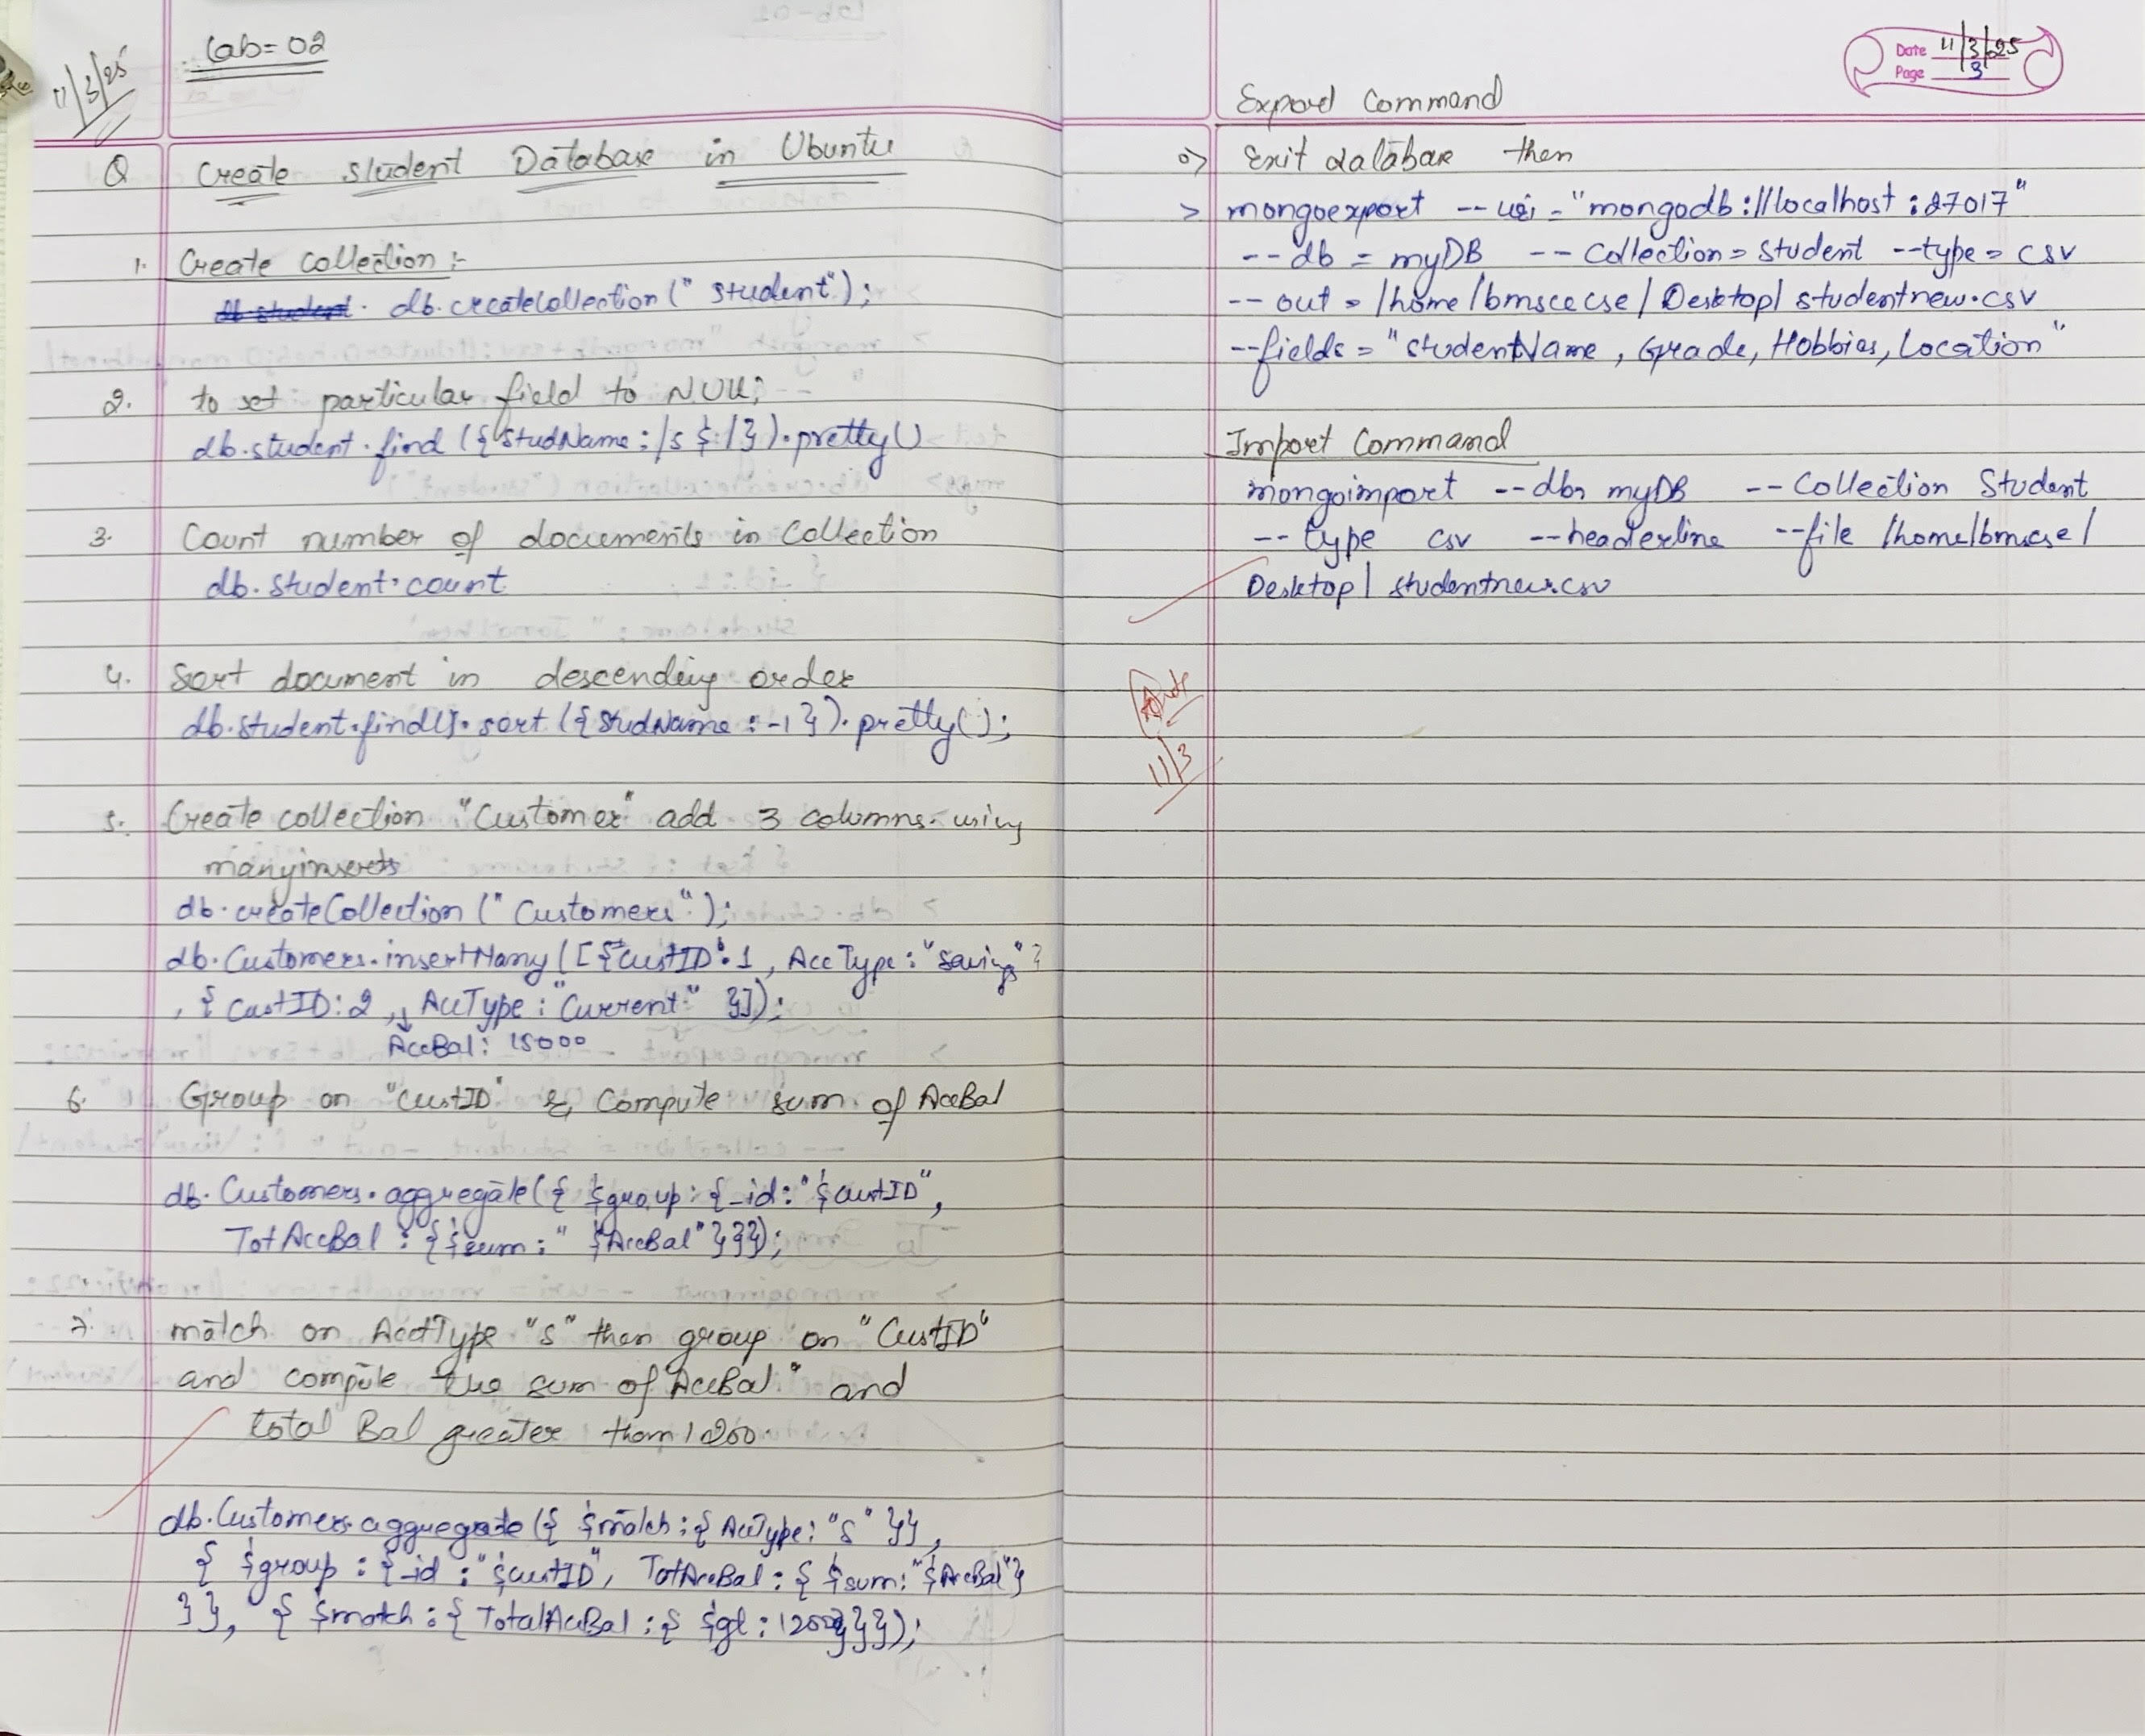 Lab=02
11/3/25
Q Create student Database in Ubuntu
1. Create Collection :-
db.student. db.createCollection (" Student");
2. to set particular field to NULL;
db.student.find ({StudName : /s $ /}).pretty()
3. Count number of documents in Collection
db.student.count
4. Sort document in descending order
db.student.find().sort ({StudName : -1 }).pretty();
5. Create collection "Customer" add 3 columns using
manyinserts
db.createCollection (" Customers");
db.Customers.insertMany ([ {CustID : 1 , AccType : "saving" }
, { CustID: 2 , AccType : "Current" }]);
AccBal : 15000
6. Group on "CustID" & Compute sum of AccBal
db.Customers.aggregate({ $group : {_id : "$custID",
TotAccBal : {$sum : " $AccBal" }}});
7. match on AcctType "S" then group on "CustID"
and compute the sum of AccBal." and
total Bal greater than 1200.
db.Customers.aggregate ({ $match : { AccType : "S" }},
{ $group : {_id : "$custID", TotAccBal : { $sum : "$AccBal"}
}}, { $match : { TotalAccBal : { $gt : 1200}}});
Date 11/3/25
Page 3
Export Command
o) Exit database then
> mongoexport --uri = "mongodb://localhost:27017"
--db = myDB -- Collection = Student --type = csv
-- out = /home/bmscecse/Desktop/studentnew.csv
--fields = "StudentName , Grade, Hobbies, Location"
Import Command
mongoimport --db= myDB -- Collection Student
-- type csv --headerline --file /home/bmscse/
Desktop/ studentnew.csv
11/3